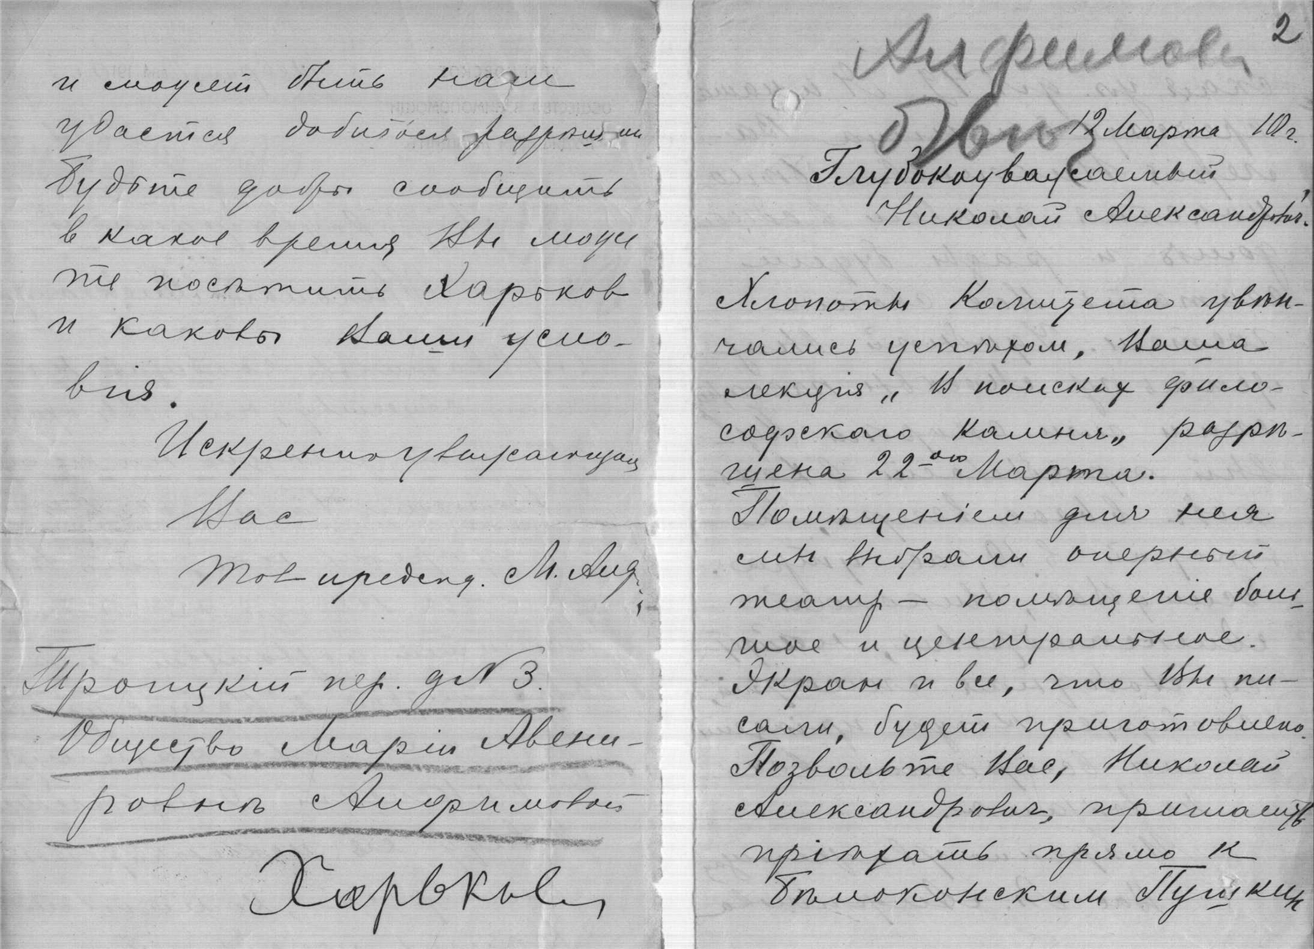 и можетъ быть нам
удастся добиться разрѣшенія
Будьте добры сообщить
в какое время Вы може
те посѣтить Харьков
и каковы Ваши усло-
вія.
Искренно уважающая
Вас
Тов предсѣд. М. Анф
Троицкій пер. д N 3.
Общество Маріи Авени-
ровнѣ Анфимовой
Харьков
2
Анфимова
12 Марта 10 г.
Глубокоуважаемый
Николай Александрович.
Хлопоты Комитета увѣн-
чались успѣхом, Ваша
лекція „В поисках фило-
софскаго камня„ разрѣ-
шена 22-ого Марта.
Помѣщеніем для нея
мы выбрали оперный
театр — помѣщеніе боль-
шое и центральное.
Экран и все, что Вы пи-
сали, будет приготовлено.
Позвольте Вас, Николай
Александрович, пригласить
пріѣхать прямо к
Бѣлоконским Пушкин